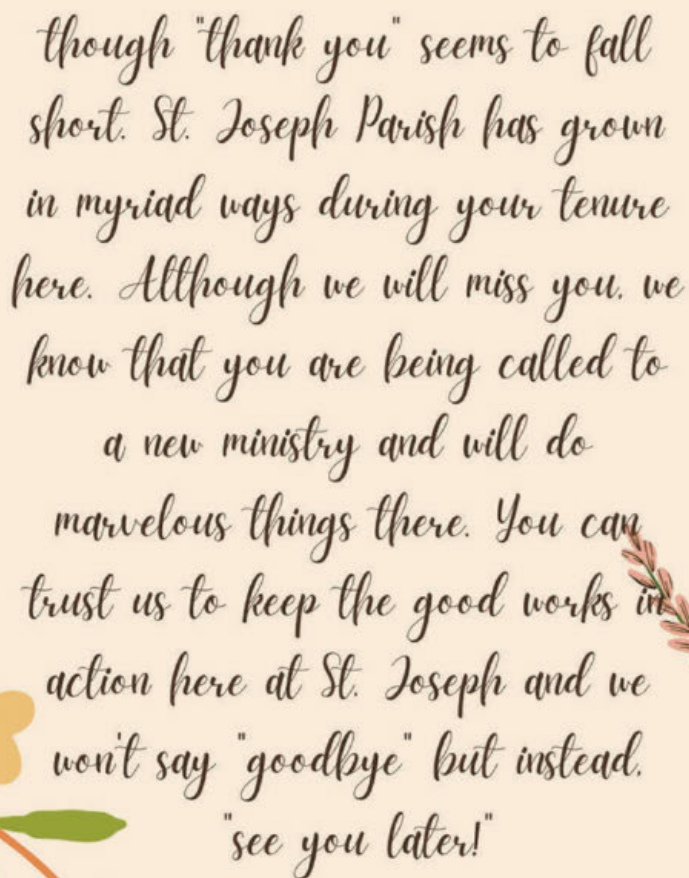 though "thank you" seems to fall
short. St. Joseph Parish has grown
in myriad ways during your tenure
here. Although we will miss you, we
know that you are being called to
a new ministry and will do
marvelous things there. You can
trust us to keep the good works in
action here at St. Joseph and we
won't say "goodbye" but instead,
"see you later!"